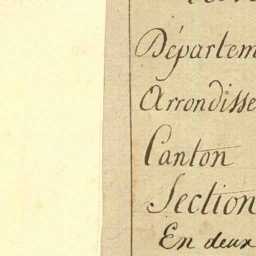 Départem
Arrondisse
Canton
Section
En deux